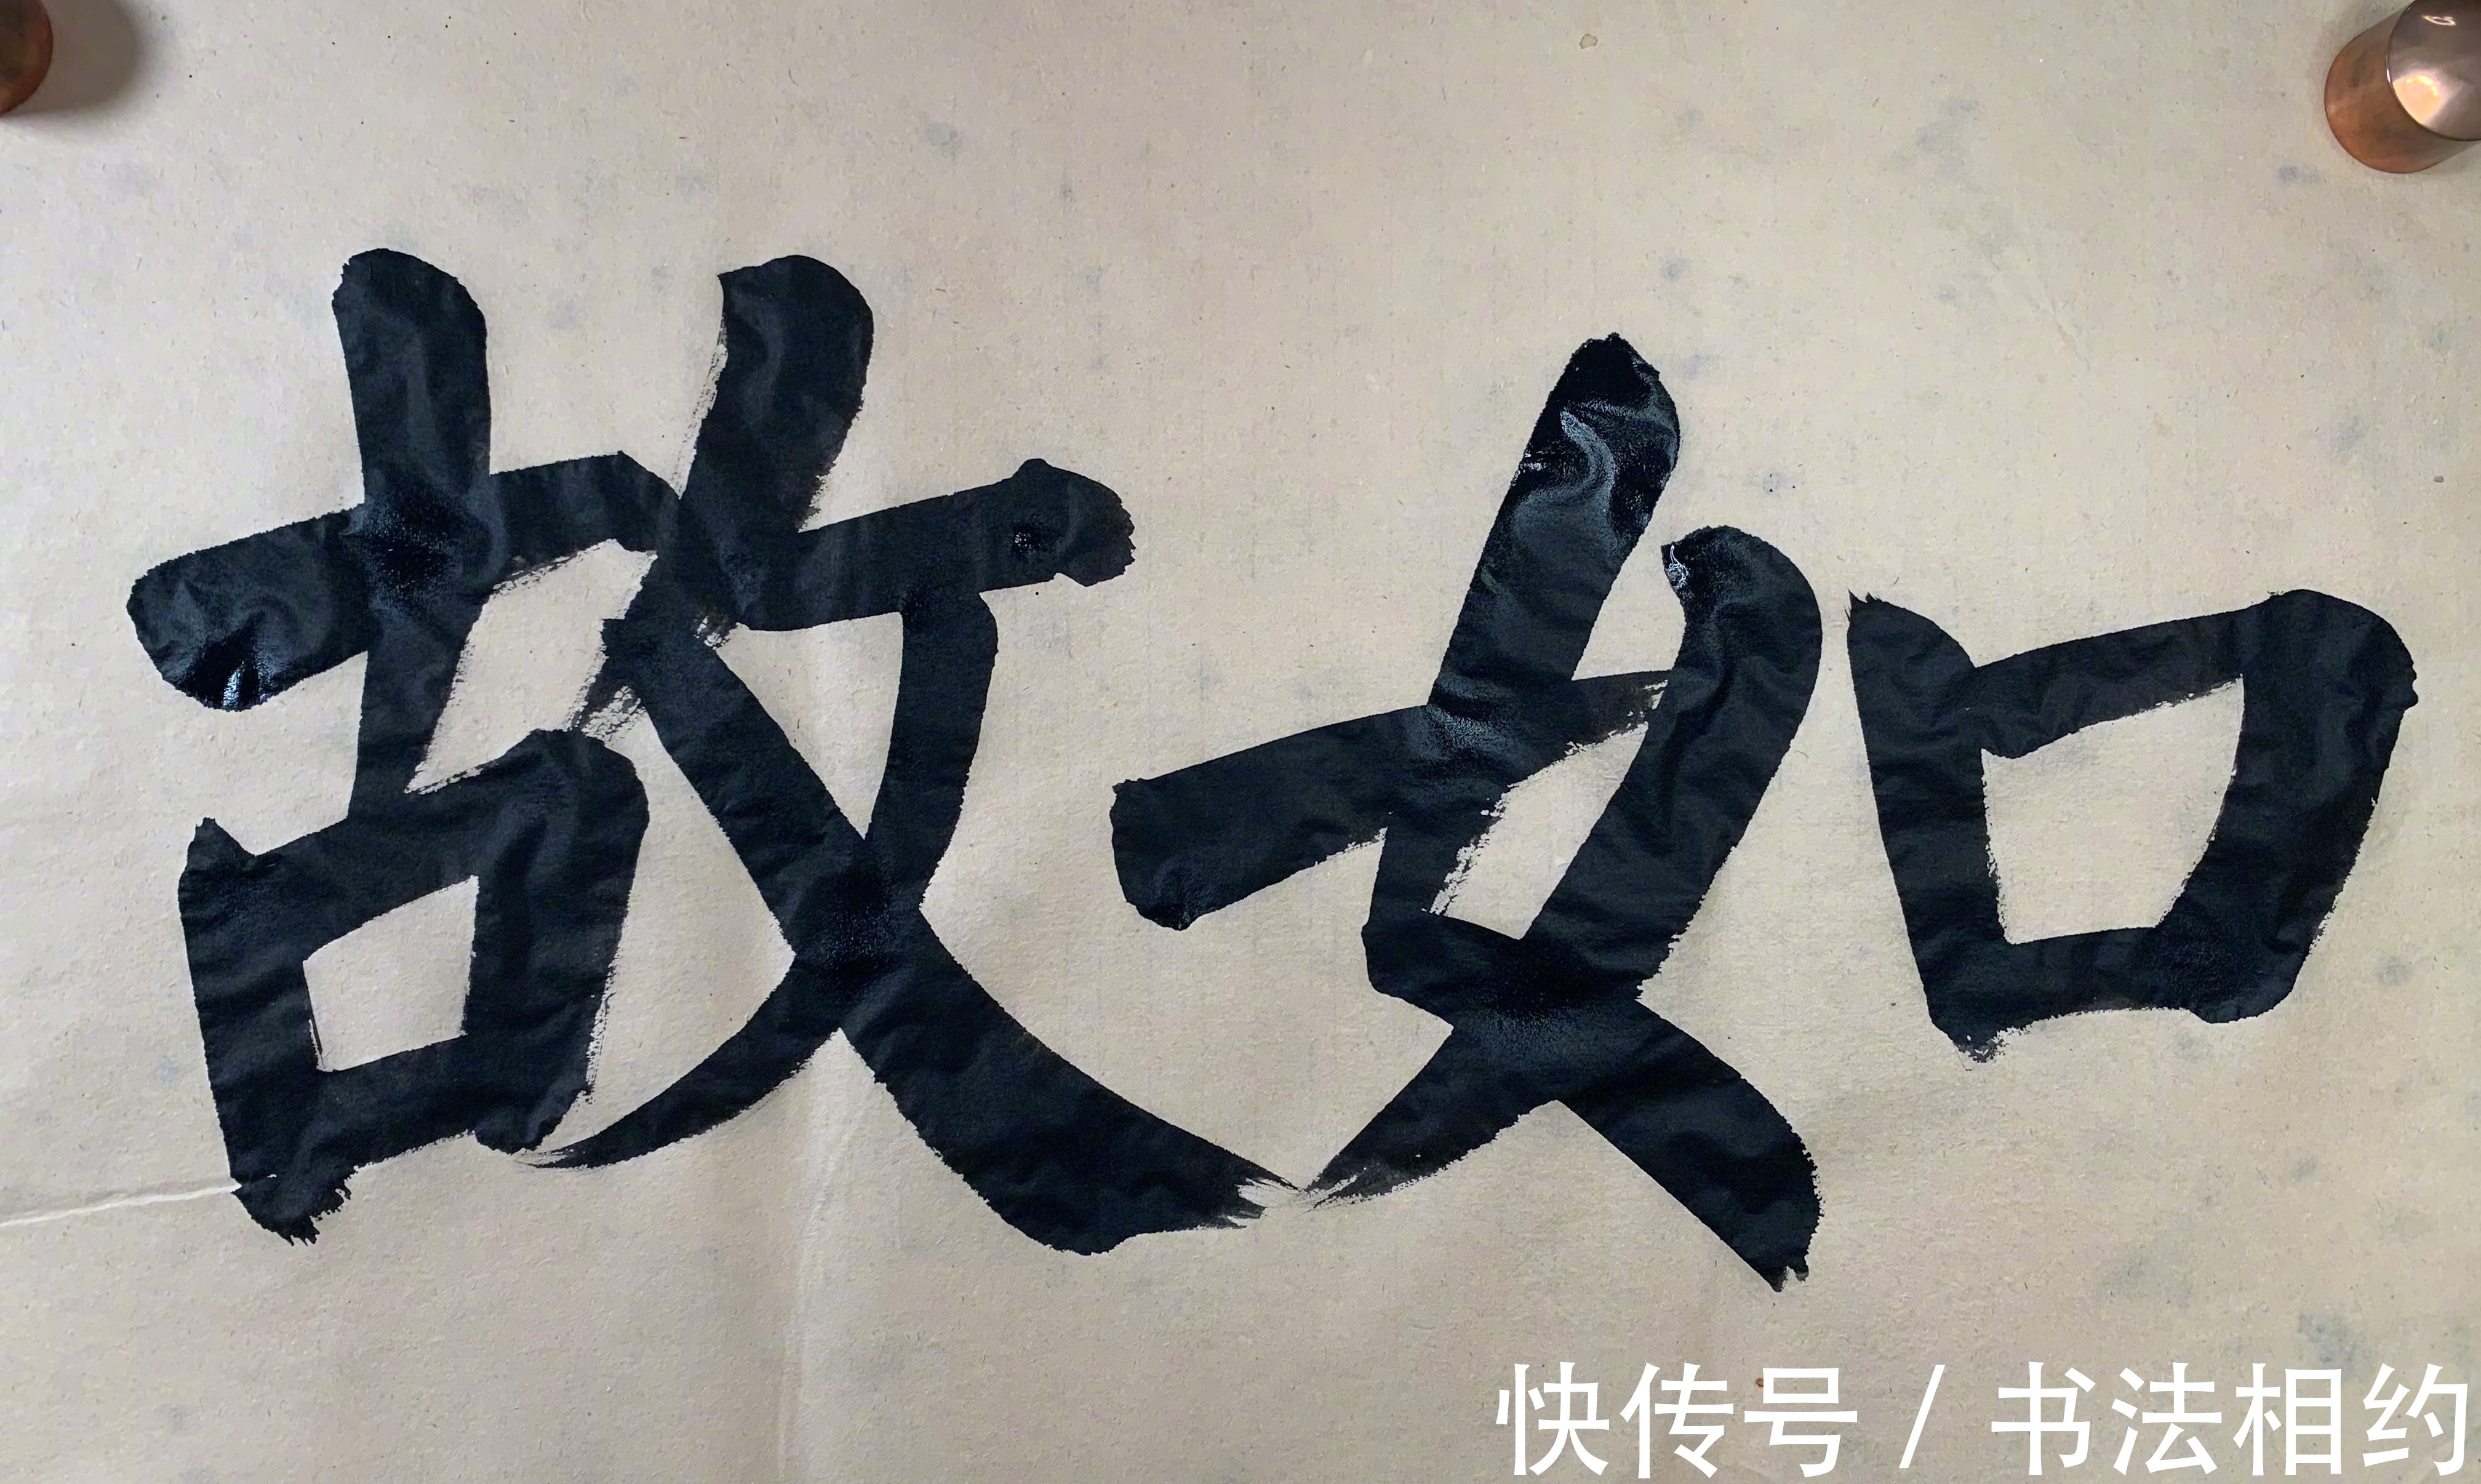 故如
快传号 / 书法相约